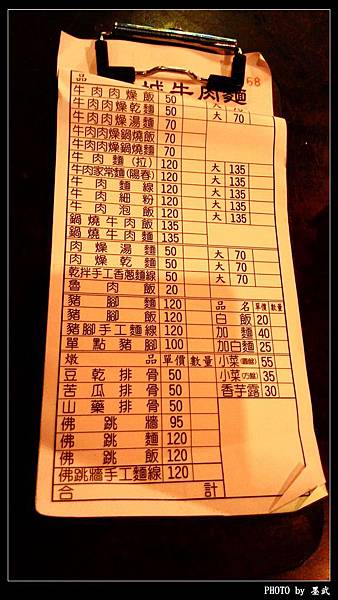 城牛肉麵 68
品
牛肉肉燥飯 50
牛肉肉燥乾麵 50 大 70
牛肉肉燥湯麵 70
牛肉肉燥鍋燒飯 70
牛肉肉燥鍋燒麵 70
牛肉麵(拉) 120
牛肉家常麵(陽春) 120 大 135
牛肉麵線 120 大 135
牛肉細粉 120 大 135
牛肉泡飯 120 大 135
鍋燒牛肉飯 135
鍋燒牛肉麵 135
肉燥湯麵 50 大 70
肉燥乾麵 50 大 70
乾拌手工香蔥麵線 50 大 70
魯肉飯 20
豬腳麵 120 品名 單價 數量
豬腳飯 120 白飯 20
豬腳手工麵線 120 加麵 40
單點豬腳 100 加白麵 25
燉品 單價 數量 小菜(圓盤) 55
豆乾排骨 50 小菜(方盤) 35
苦瓜排骨 50 香芋露 30
山藥排骨 50
佛跳牆 95
佛跳麵 120
佛跳飯 120
佛跳牆手工麵線 120
合計
PHOTO by 墨武